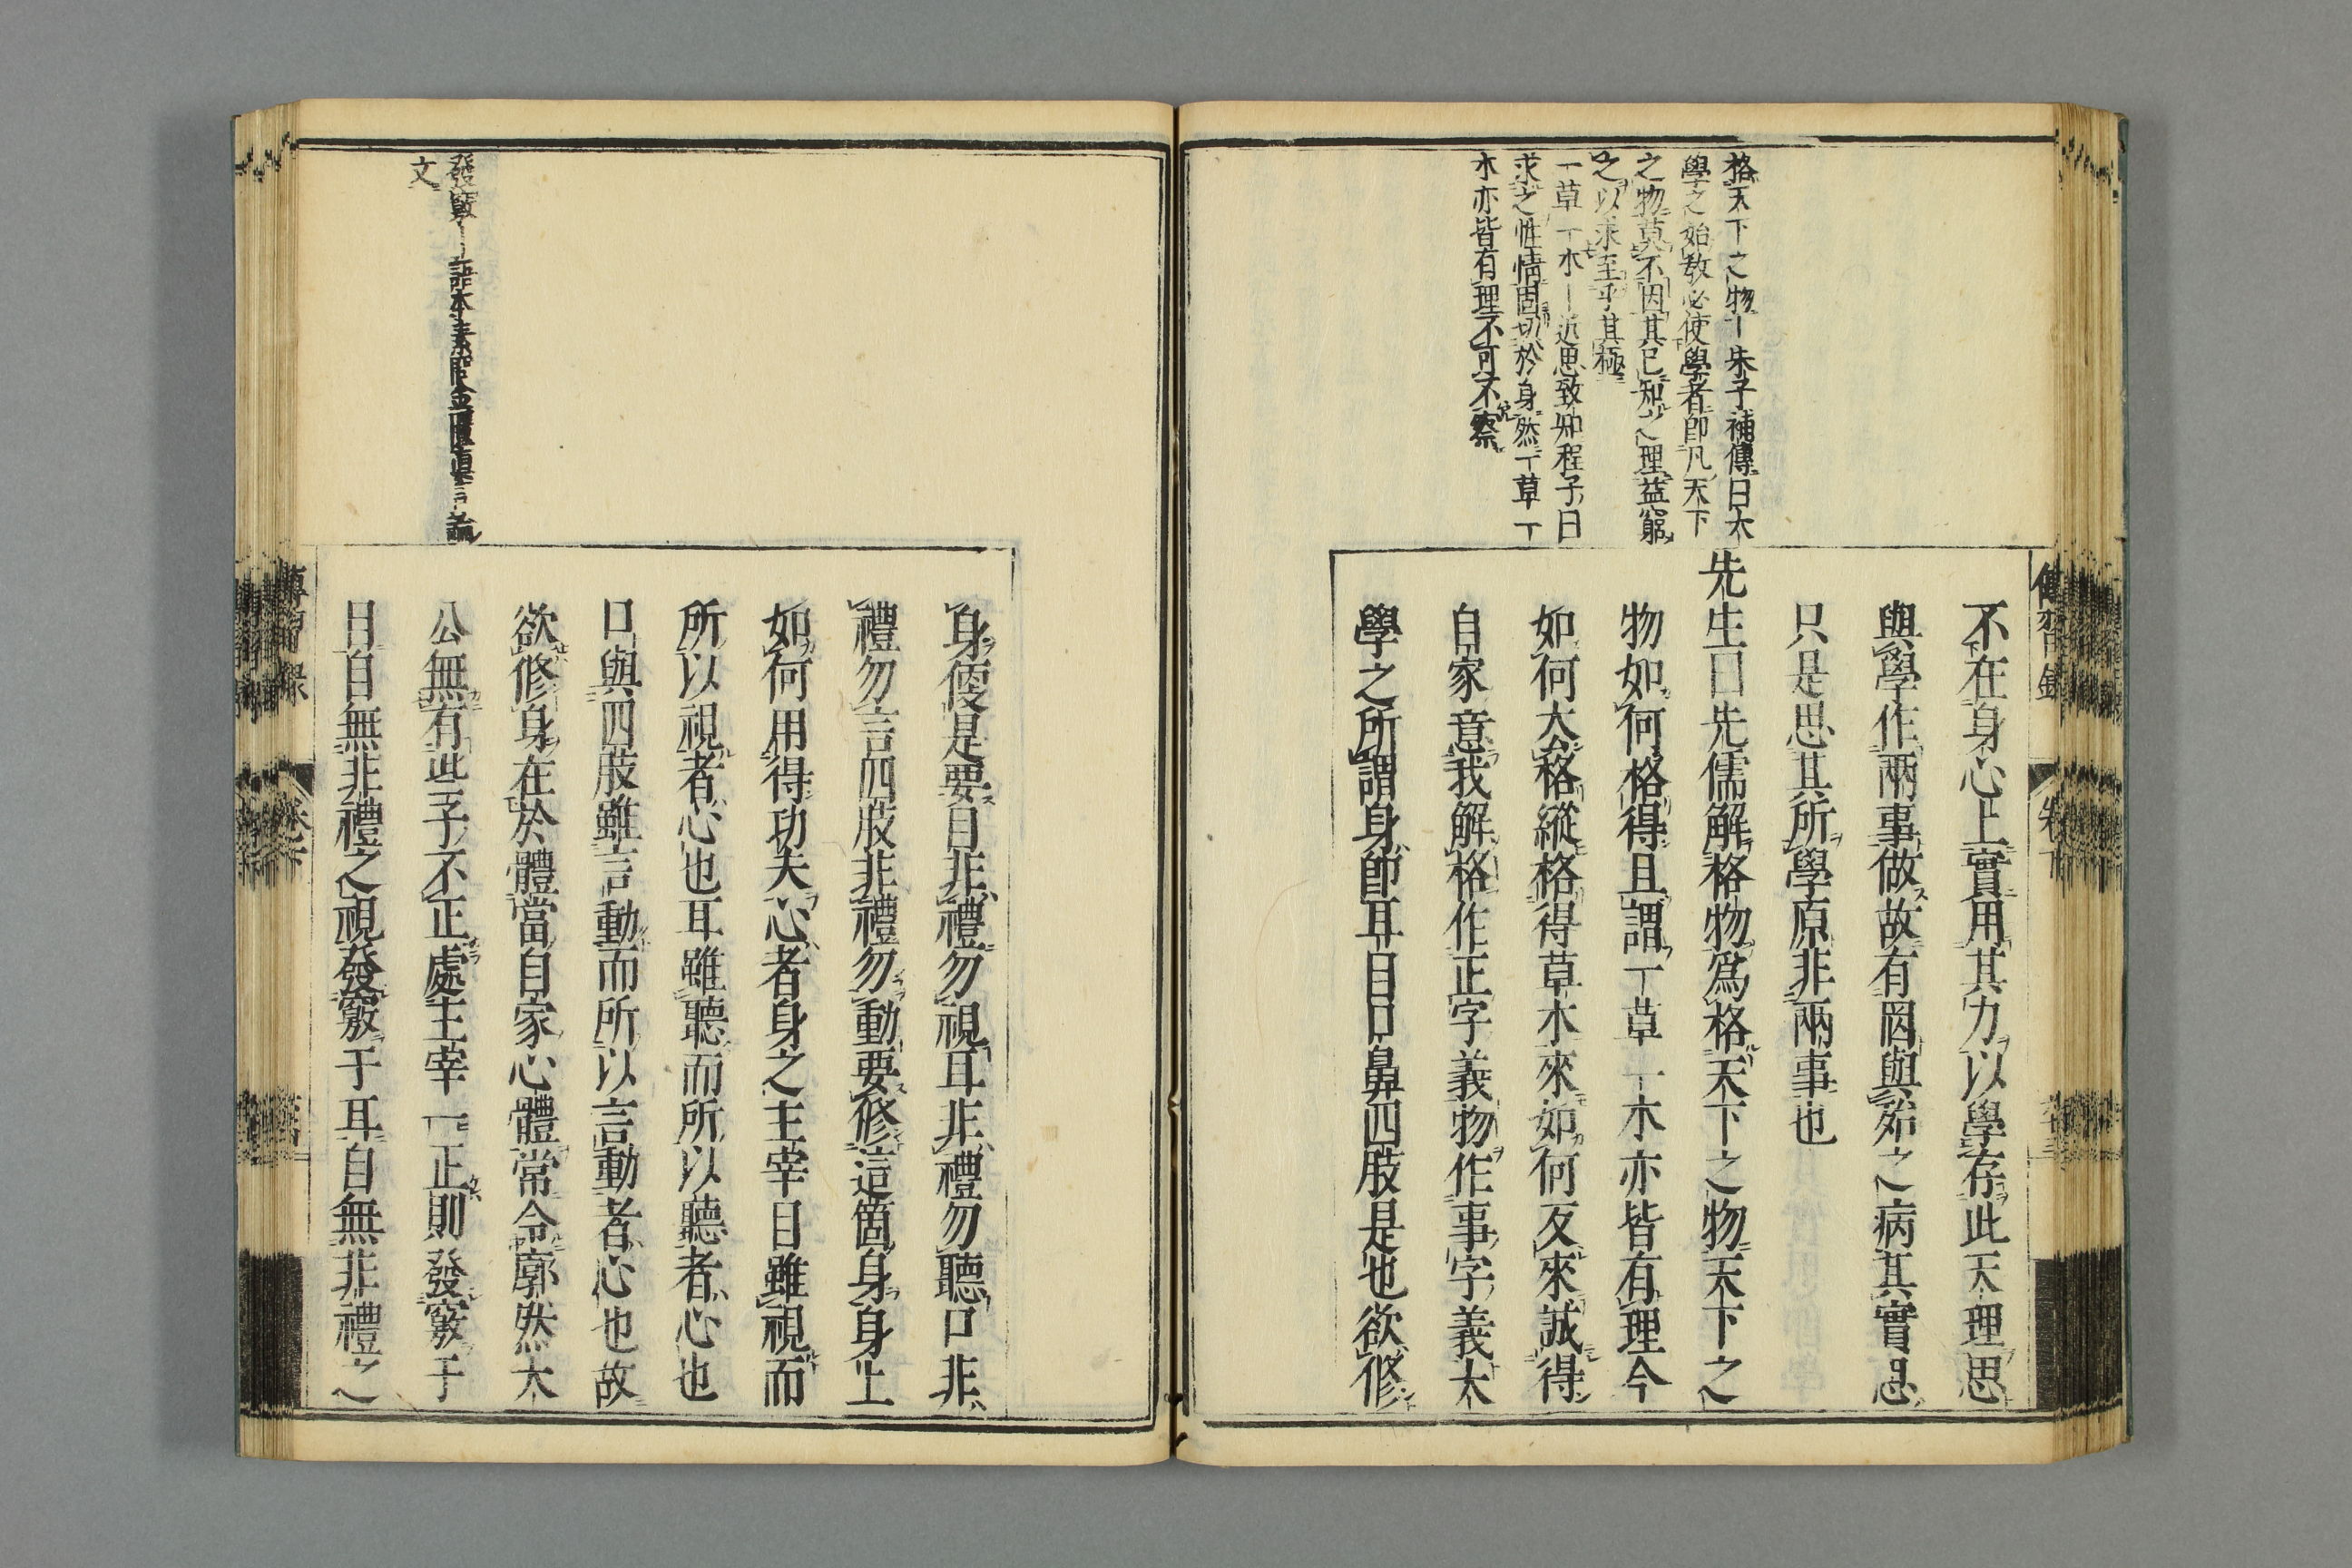 格天下之物丨朱子補傳曰大
學之始敎必使學者卽凡天下
之物莫不因其已知之理益窮
之以求至乎其極
一草一木丨近思致知程子曰
求之性情固切於身然一草一
木亦皆有理不可不察
不在身心上實用其力以學存此天理思
與學作兩事做故有罔與殆之病其實思
只是思其所學原非兩事也
先生曰先儒解格物爲格天下之物天下之
物如何格得且謂一草一木亦皆有理今
如何去格縱格得草木來如何反來誠得
自家意我解格作正字義物作事字義大
學之所謂身卽耳目口鼻四肢是也欲修
發竅丨語本素問金匱眞言論
文
身便是要目非禮勿視耳非禮勿聽口非
禮勿言四肢非禮勿動要修這箇身身上
如何用得功夫心者身之主宰目雖視而
所以視者心也耳雖聽而所以聽者心也
口與四肢雖言動而所以言動者心也故
欲修身在於體當自家心體常令廓然大
公無有些子不正處主宰一正則發竅于
目自無非禮之視發竅于耳自無非禮之
傳習錄
卷下